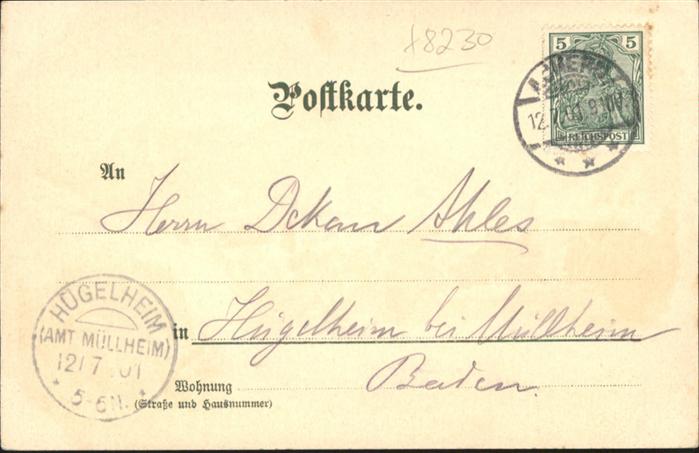 18230
5 5
REICHSPOST
12.7.01
Postkarte.
An
Herrn Dekan Ahles
in Hügelheim bei Müllheim
Baden.
Wohnung
(Straße und Hausnummer)
HÜGELHEIM
(AMT MÜLLHEIM)
12 7 01
5-6N.